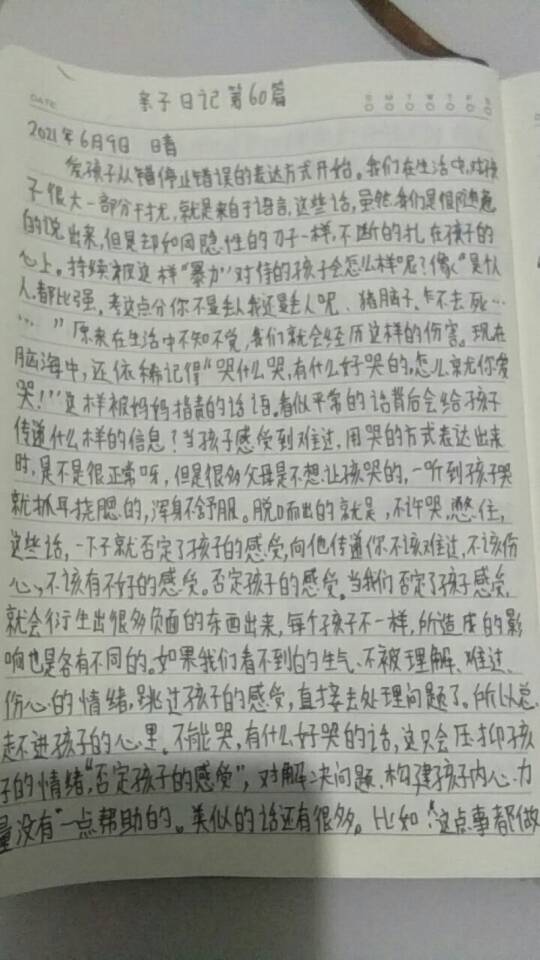 亲子日记第60篇
DATE
S M T W T F S
2021年6月9日 晴
爱孩子从错停止错误的表达方式开始。我们在生活中,对孩
子很大一部分干扰,就是来自于语言,这些话,虽然我们是很随意
的说出来,但是却如同隐性的刀子一样,不断的扎在孩子的
心上。持续被这样“暴力”对待的孩子会怎么样呢?像“是个人
人都比强。考这点分你不是丢人我还是丢人呢、猪脑子、乍不去死…
…… ” 原来在生活中不知不觉,我们就会经历这样的伤害。现在
脑海中,还依稀记得“哭什么哭,有什么好哭的,怎么就你爱
哭!”这样被妈妈指责的话语。看似平常的话背后会给孩子
传递什么样的信息?当孩子感受到难过,用哭的方式表达出来
时,是不是很正常呀,但是很多父母是不想让孩哭的,一听到孩子哭
就抓耳挠腮的,浑身不舒服。脱口而出的就是,不许哭,憋住,
这些话,一下子就否定了孩子的感受,向他传递你不该难过,不该伤
心,不该有不好的感受。否定孩子的感受。当我们否定了孩子感受,
就会衍生出很多负面的东西出来,每个孩子不一样,所造成的影
响也是各有不同的。如果我们看不到的生气、不被理解、难过、
伤心的情绪,跳过孩子的感受,直接去处理问题了。所以总
走不进孩子的心里。不能哭,有什么好哭的话,这只会压抑孩
子的情绪,“否定孩子的感受”,对解决问题、构建孩子内心力
量没有一点帮助的。类似的话还有很多。比如:“这点事都做